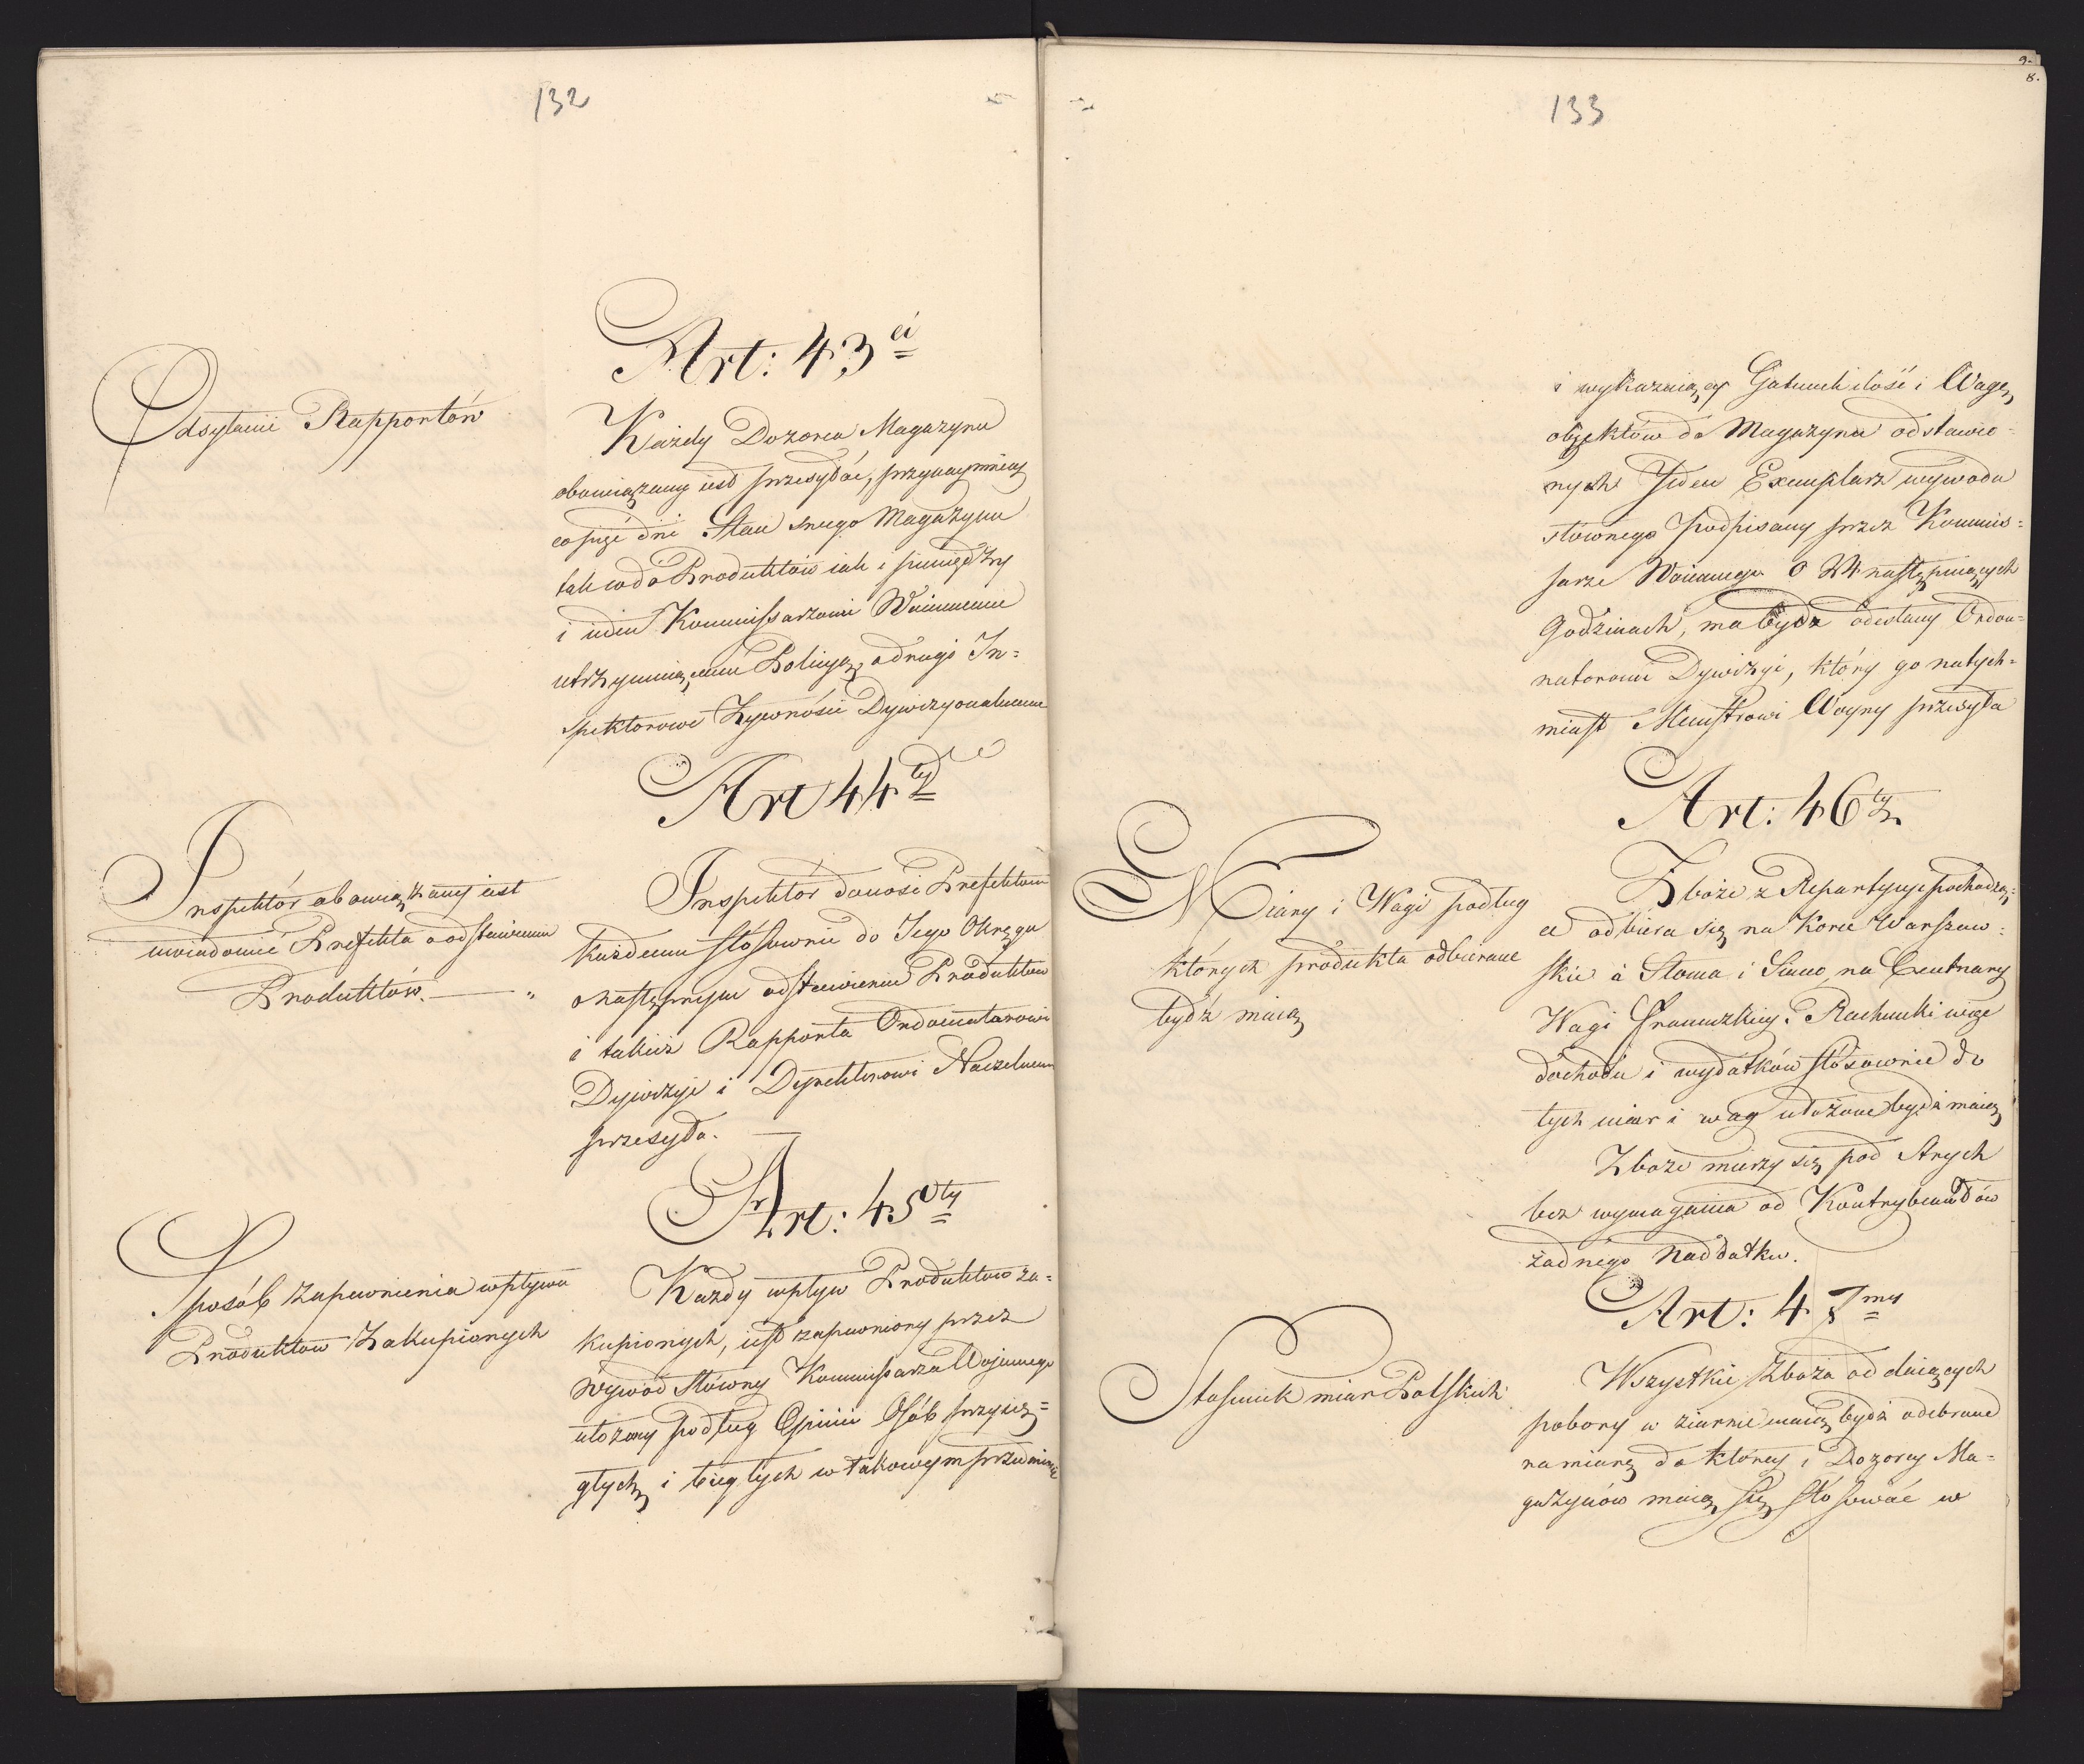 132
Art: 43ci
Odsyłanie Rapportów
Każdy Dozorca Magazynu
obowiązany iest przesyłać, przynaymniey
co pięć dni Stan swego Magazynu
tak co do Produktów iak i pieniędzy
i ieden Kommissarzowi Woiennemu
utrzymuiącemu Policyą, a drugi In=
spektorowi Żywności Dywizyonalnemu
Art 44ty
Inspektór obowiązany iest
uwiadomić Prefekta o odstawieniu
Produktów. — "
Inspektór donosi Prefektom
każdemu stósownie do Jego Okręgu
o następnym odstawieniu Produktów
i takież Rapporta Ordonatorowi
Dywizyi i Dyrektorowi Naczelnemu
przesyła. —
Art: 45ty
Sposób zapewnienia wpływu
Produktów Zakupionych
Każdy wpływ Produktów za=
kupionych, iest zapewniony przez
Wywód Słowny Kommissarza Wojennego
ułożony podług Opinii Osób przysię=
głych, i biegłych w takowym przedmiocie
9.
8.
133
i wykazuiący Gatunek ilość i Wagę,
objektów do Magazynu odstawio=
nych Jeden Exemplarz wywodu
słównego Podpisany przez Kommis=
sarza Woiennego o 24 następuiących
Godzinach, ma bydź odesłany Ordon=
natorowi Dywizyi, który go natych=
miast Ministrowi Woyny przesyła
Art: 46ty
Miary i Wagi podług
których produkta odbierane
bydź maią
Zboże z Repartycyi pochodzą=
ce odbiera się na Korce Warszaw=
skie a Słoma i Siano na Centnary
Wagi Francuzkiey. Rachunki więc
dochodu i wydatków stósownie do
tych miar i wag ułożone bydź maią
Zboże mierzy się pod Strych
bez wymagania od Kontrybuentów
żadnego Naddatku.
Art: 47my
Stosunek miar Polskich
Wszystkie Zboża od daiących
pobory w ziarnie maią bydź odebrane
na miarę do którey i Dozorcy Ma=
gazynów maią się stósować w